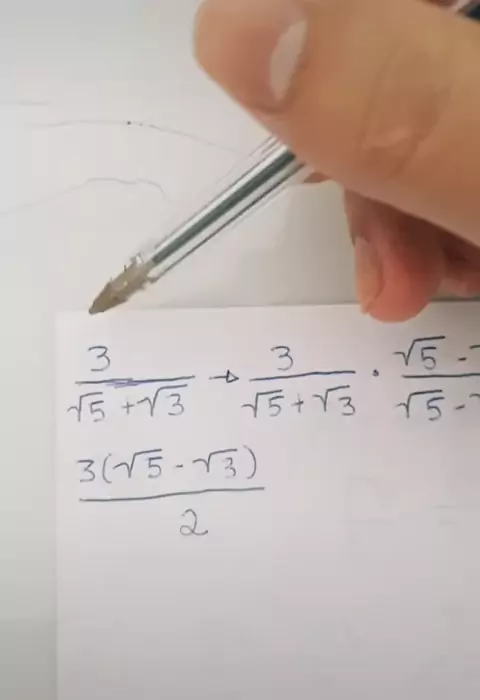 3/(√5+√3) → 3/(√5+√3) · (√5-)/(√5-)
3(√5-√3)/2